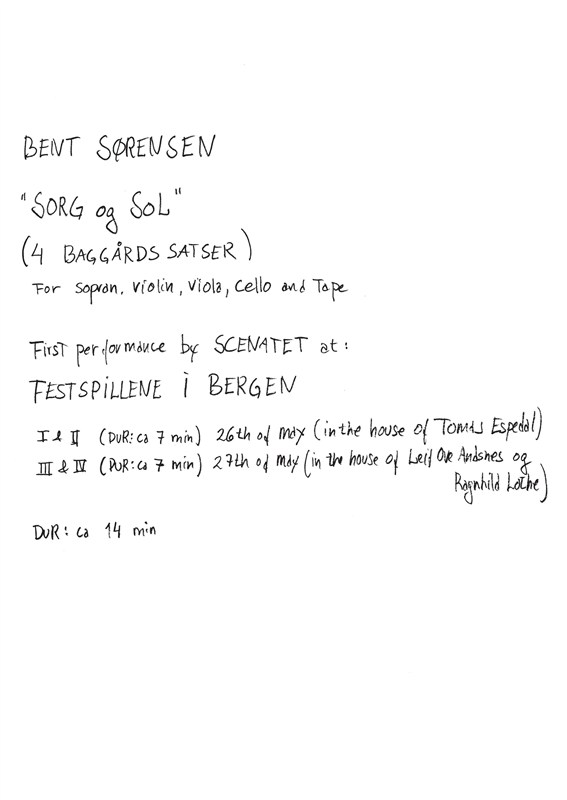 BENT SØRENSEN
"SORG og SOL"
(4 BAGGÅRDS SATSER)
For sopran, violin, viola, cello and Tape
First performance by SCENATET at:
FESTSPILLENE i BERGEN
I & II (DUR: ca 7 min) 26th of may (in the house of Tomas Espedal)
III & IV (DUR: ca 7 min) 27th of may (in the house of Leif Ove Andsnes og
Ragnhild Lothe)
DUR: ca 14 min